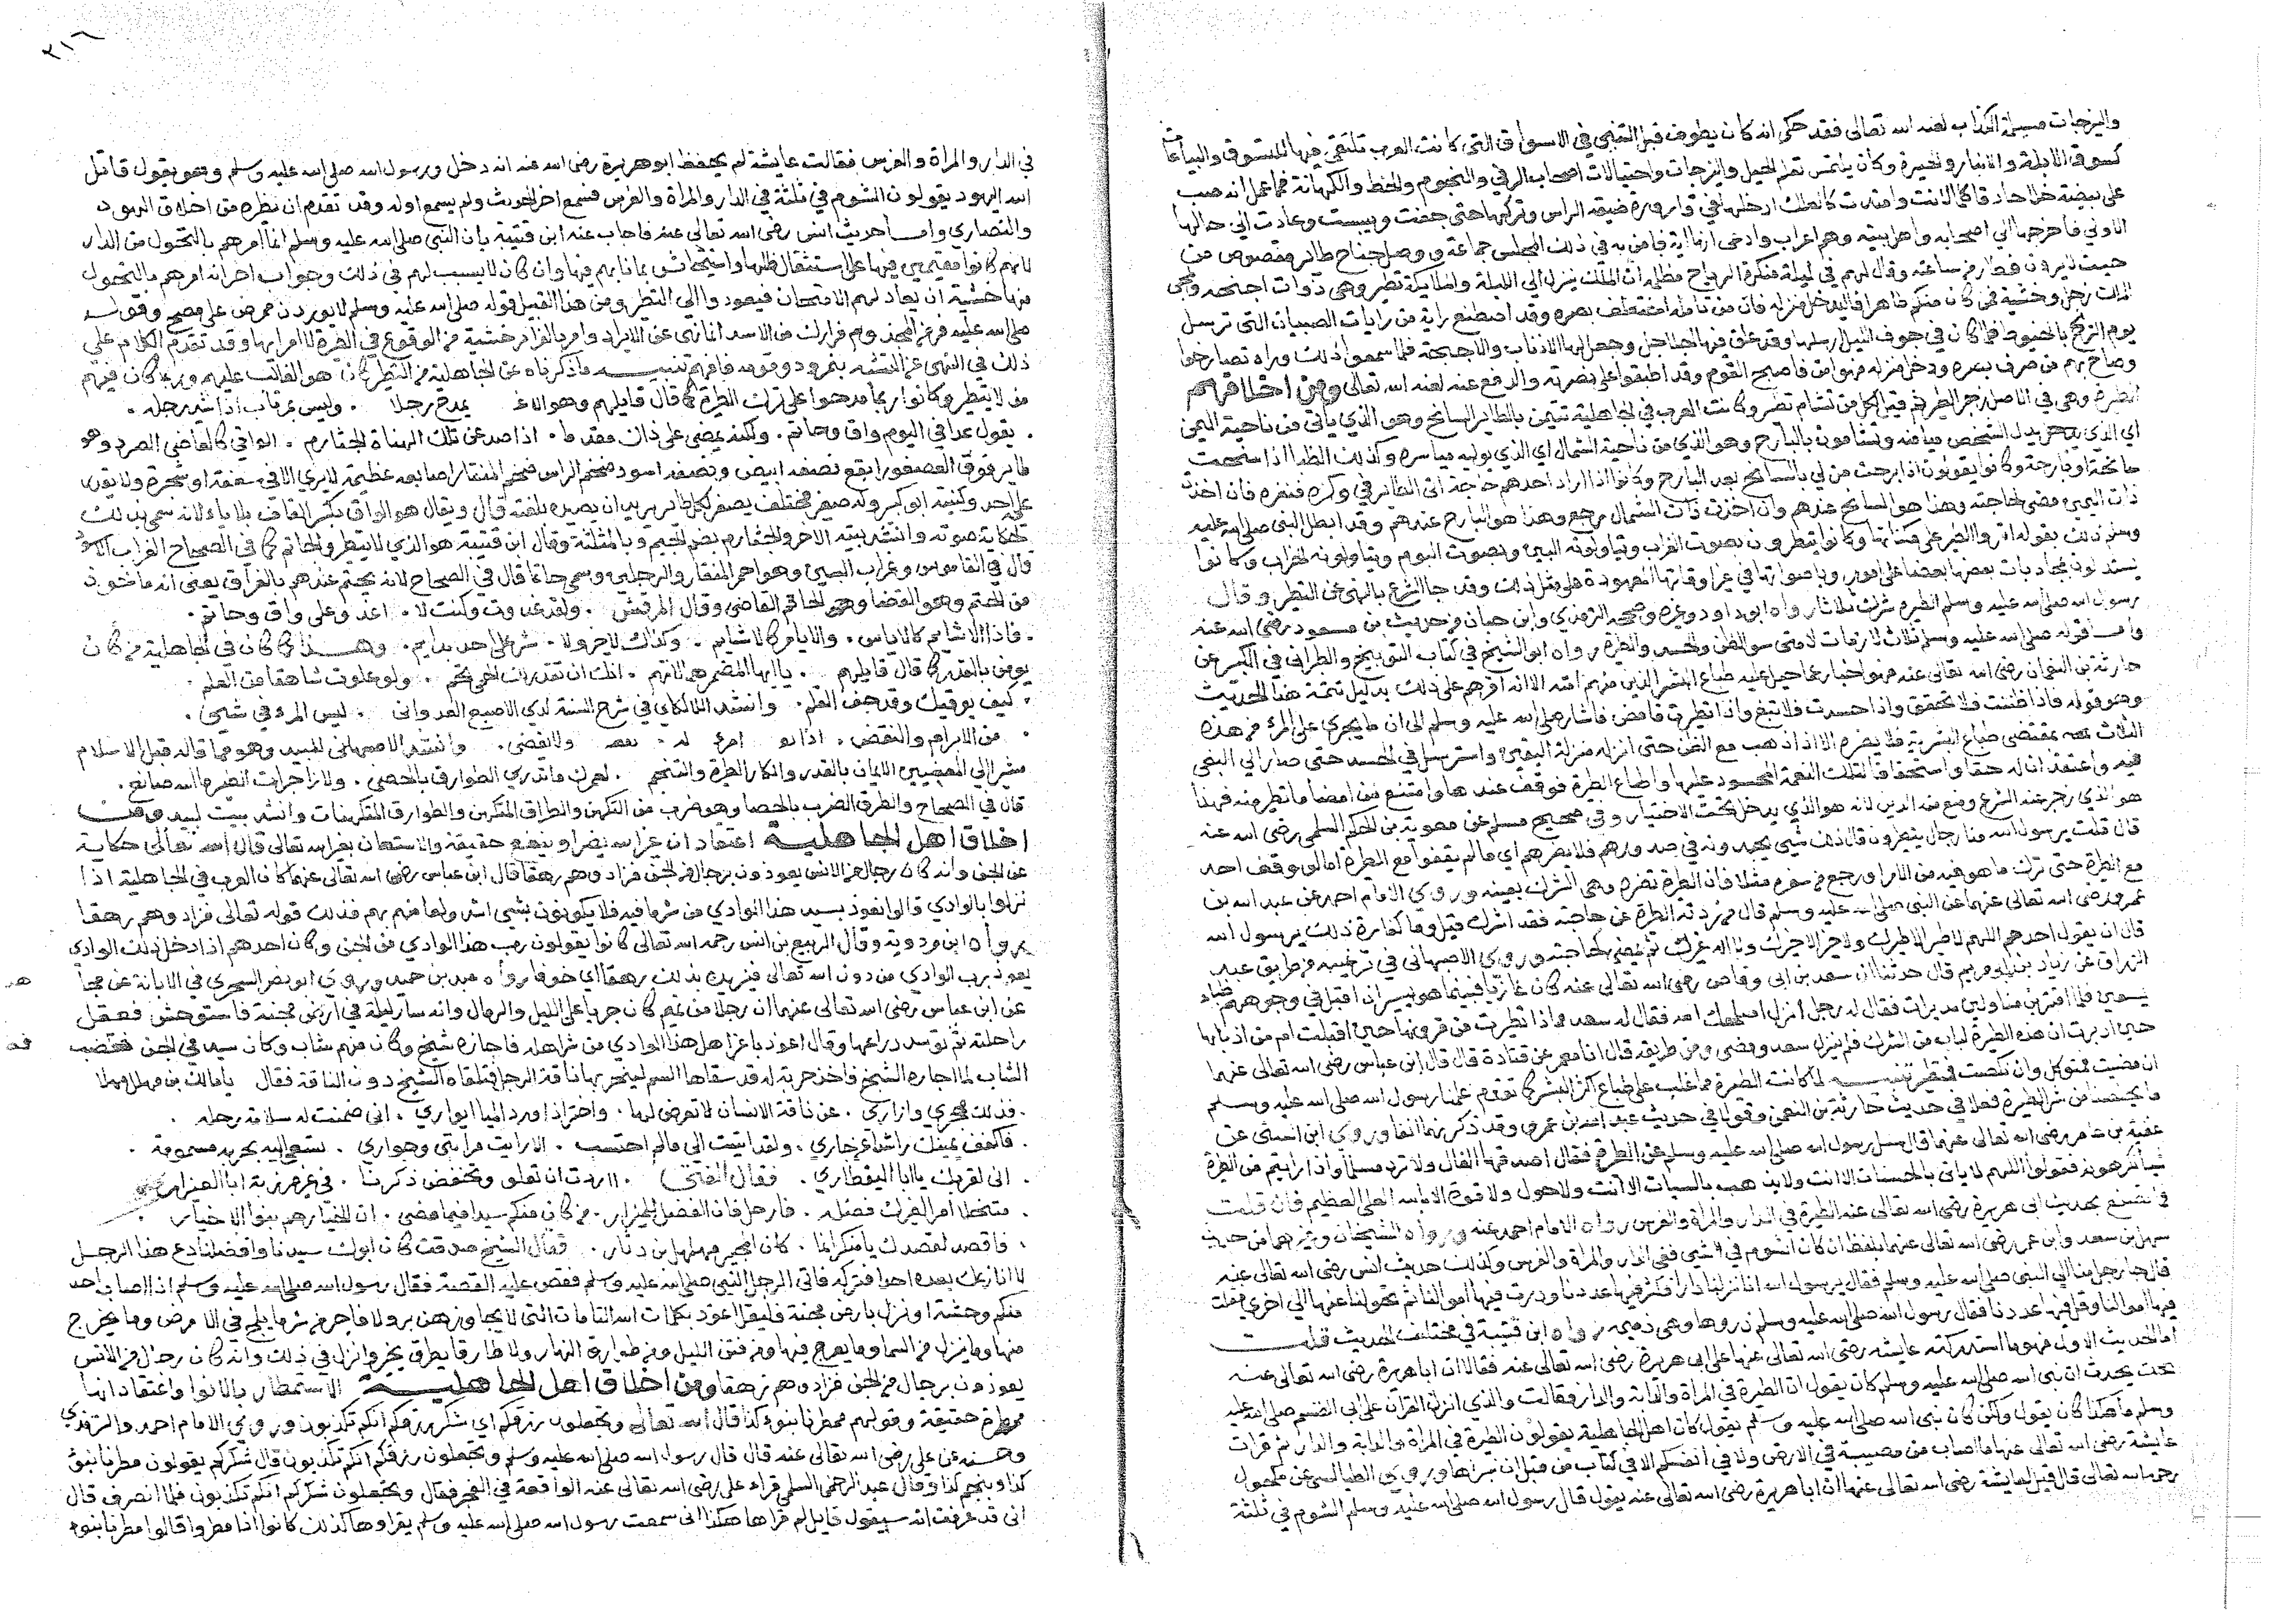 والنرجات مسيلمة الكذاب لعنه الله تعالى فقد حكي انه كان يطوف قبل التنبي في الاسواق التي كانت العرب تلتقي فيها للتسوق والبياعات
كسوق الابلة والانبار والحيرة وكان يلتمس تعلم الحيل والنيرجات واحتيالات اصحاب الرقي والنجوم والخط والكهانة فما عمل انه صب
على بيضة خلا حاذقا فلانت وامتدت كالعلك ادخلها في قارورة ضيقة الراس وتركها حتى جفت ويبست وعادت الى حالها
الاولى فاخرجها الى اصحابه واهل بيته وهم اعراب وادعى انها اية فامن به في ذلك المجلس جماعة ووصل جناح طائر مقصوص من
حيث لا يرون فطار من ساعته وقال لهم في ليلة منكرة الرياح مظلمة ان الملك ينزل الي الليلة والملايكة تطير وهي ذوات اجنحة ولمجئ
الملك زجل وخشية فمن كان منكم ظاهرا فليدخل منزله فان من تامله اختطف بصره وقد اصطنع راية من رايات الصبيان التي ترسل
يوم الريح بالخيوط فلما كان في جوف الليل ارسلها وقد علق فيها الجلاجل وجعل لها الاذناب والاجنحة فلما سمعوا ذلك وراه تصارخوا
وصاح بهم من صرف بصره ودخل منزله فهو امن فاصبح القوم وقد اطبقوا على نصرته والدفع عنه لعنه الله تعالى ومن اخلاقهم
الطيرة وهي في الاصل زجر الطير ثم قيل لكل من تشام تطير وكانت العرب في الجاهلية تتيمن بالطاير السانح وهو الذي ياتي من ناحية اليمين
اي الذي يدل الشخص ميامنه وتتشامون بالبارح وهو الذي من ناحية الشمال اي الذي يوليه مياسره وكذلك الظبا اذا سنحت
سانحة او بارحة وكانوا يقولون اذا برحت من لي بالسانح بعد البارح وكانوا اذا اراد احدهم حاجة اتى الطاير في وكره فنفره فان اخذ
ذات اليمين مضى لحاجته وهذا هو السانح عندهم وان اخذت ذات الشمال رجع وهذا هو البارح عندهم وقد ابطل النبي صلى الله عليه
وسلم ذلك بقوله اقروا الطير على مكناتها وكانوا يتطيرون بصوت الغراب ويتاولونه البين وبصوت البوم ويتاولونه الخراب وكانوا
يستدلون بمجاوبات بعضها بعضا على امور وباصواتها في غير اوقاتها المعهودة على مثل ذلك وقد جا الشرع بالنهي عن التطير وقال
رسول الله صلى الله عليه وسلم الطيرة شرك ثلاثا رواه ابو داود وغيره وصححه الترمذي وابن حبان من حديث بن مسعود رضي الله عنه
واما قوله صلى الله عليه وسلم ثلاث لازمات لامتي سو الظن والحسد والطيرة رواه ابو الشيخ في كتاب التوبيخ والطبراني في الكبير عن
حارثة بن النعمان رضي الله تعالى عنه فهو اخبار عما جبل عليه طباع البشر الذين منهم امته الا انه اقرهم على ذلك بدليل تتمة هذا الحديث
وهو قوله فاذا ظننت فلا تحقق واذا حسدت فلا تبغ واذا تطيرت فامض فاشار صلى الله عليه وسلم الى ان ما يجري على المرء من هذه
الثلاث بمقتضى طباع البشرية فلا يضره الا اذا ذهب مع الظن حتى انزله منزلة اليقين واسترسل في الحسد حتى صار الى البغي
فيه واعتقد ان له حقا واستحقاقا لتلك النعمة المحسود عليها واطاع الطيرة فوقف عندها وامتنع من امضا ما تطير منه فهذا
هو الذي زجر عنه الشرع ومنع منه الدين لانه هو الذي يدخل تحت الاختيار وفي صحيح مسلم عن معوية بن الحكم السلمي رضي الله عنه
قال قلت يرسول الله منا رجال يتطيرون قال ذلك شيئ يجدونه في صدورهم فلا يضرهم اي ما لم يقفوا مع الطيرة اما لو توقف احد
مع الطيرة حتى ترك ما هو فيه من الامر او رجع من سفره مثلا فان الطيرة تضره وهي الشرك بعينه وروي الامام احمد عن عبد الله بن
عمرو رضي الله تعالى عنهما عن النبي صلى الله عليه وسلم قال من ردته الطيرة عن حاجته فقد اشرك قيل وما كفارة ذلك يرسول الله
قال ان يقول احدهم اللهم لا طير الا طيرك ولا خير الا خيرك ولا اله غيرك ثم يمضي لحاجته وروي الاصبهاني في ترغيبه من طريق عبد
الرزاق عن زياد بن ابي مريم قال حدثنا ان سعد بن ابي وقاص رضي الله تعالى عنه كان غازيا فبينما هو يسير اذ اقبل في وجوههم ظباء
يسعين فلما اقتربن منا ولين مدبرات فقال له رجل انزل اصلحك الله فقال له سعد مماذا تطيرت من قرونها حين اقبلت ام من اذنابها
حين ادبرت ان هذه الطيرة لباب من الشرك فلم ينزل سعد ومضى ومن طريقه قال انا معمر عن قتادة قال قال ابن عباس رضي الله تعالى عنهما
ان مضيت فمتوكل وان نكصت فمتطير تنبيـه لما كانت الطيرة مما غلب على طباع اكثر البشر كما تقدم علمنا رسول الله صلى الله عليه وسلم
ما يحفظنا من شر الطيرة فعلا في حديث حارثة بن النعمن وقولا في حديث عبد الله بن عمرو وقد ذكرتهما انفا وروي ابن السني عن
عقبة بن عامر رضي الله تعالى عنهما قال سئل رسول الله صلى الله عليه وسلم عن الطيرة فقال اصدقها الفال ولا ترد مسلما واذا رايتم من الطيرة
شيا تكرهونه فقولوا اللهم لا ياتي بالحسنات الا انت ولا يذهب بالسيات الا انت ولا حول ولا قوة الا بالله العلي العظيم فان قلت
فما تصنع بحديث ابي هريرة رضي الله تعالى عنه الطيرة في الدار والمراة والفرس رواه الامام احمد عنه ورواه الشيخان وغيرهما من حديث
سهل بن سعد وابن عمر رضي الله تعالى عنهما بلفظ ان كان الشوم في شيئ ففي الدار والمراة والفرس وكذلك حديث انس رضي الله تعالى عنه
قال جا رجل منا الى النبي صلى الله عليه وسلم فقال يرسول الله انا نزلنا دارا فكثر فيها عددنا وكثرت فيها اموالنا ثم تحولنا عنها الى اخرى فقلت
فيها اموالنا وقل فيها عددنا فقال رسول الله صلى الله عليه وسلم ذروها وهي ذميمه رواه ابن قتيبة في مختلف الحديث قلـت
اما الحديث الاول فهو ما استدركته عايشة رضي الله تعالى عنها على ابي هريرة رضي الله تعالى عنه فقالا ان ابا هريرة رضي الله تعالى عنه
يحدث ان نبي الله صلى الله عليه وسلم كان يقول ان الطيرة في المراة والدابة والدار فقالت والذي انزل القرآن على ابي القسم صلى الله عليه
وسلم ما هكذا كان يقول ولكن كان نبي الله صلى الله عليه وسلم يقول كان اهل الجاهلية يقولون الطيرة في المراة والدابة والدار ثم قرات
عايشة رضي الله تعالى عنها ما اصاب من مصيبة في الارض ولا في انفسكم الا في كتاب من قبل ان نبراها وروي الطيالسي عن مكحول
رحمه الله تعالى قال قيل لعايشة رضي الله تعالى عنها ان ابا هريرة رضي الله تعالى عنه يقول قال رسول الله صلى الله عليه وسلم الشوم في ثلثة
٢١٦
في الدار والمراة والفرس فقالت عايشة لم يحفظ ابو هريرة رضي الله عنه انه دخل ورسول الله صلى الله عليه وسلم وهو يقول قاتل
الله اليهود يقولون الشوم في ثلثة في الدار والمراة والفرس فسمع اخر الحديث ولم يسمع اوله وقد تقدم ان نظيره من اخلاق اليهود
والنصاري واما حديث انس رضي الله تعالى عنه فاجاب عنه ابن قتيبة بان النبي صلى الله عليه وسلم انما امرهم بالتحول من الدار
لانهم كانوا مقيمين فيها على استثقال ظلها واستيحاش بما نابهم فيها وان كان لا يسبب لهم في ذلك وجواب اخر انه امرهم بالتحول
منها خشية ان يعاد لهم الامتحان فيعودوا الى التطير ومن هذا القبيل قوله صلى الله عليه وسلم لا يوردن ممرض على مصح وقوله
صلى الله عليه فر من المجذوم فرارك من الاسد انما نهى عن الايراد وامر بالفرار خشية من الوقوع في الطيرة لا امرابها وقد تقدم الكلام على
ذلك في النهي عن التشبه بنمرود وقومه فافهم تنبيـه ما ذكرناه عن الجاهلية من التطير كان هو الغالب عليهم وربما كان فيهم
من لا يتطير وكانوا ربما مدحوا على ترك الطيرة كما قال قايلهم وهو يمدح رجلا . وليس بهياب اذا شد رحله .
. يقول عداني اليوم واق وحاتم . ولكنه يمضي على ذاك مقدما . اذا صد عن تلك الهناة الخثارم . الواقي كالقاضي الصرد وهو
طاير فوق العصفور ابقع نصفه ابيض ونصفه اسود ضخم الراس ضخم المنقار اصابعه عظيمة لا يرى الا في سعفة او شجرة ولا يقدر
عليه احد وكنيته ابو كبير وله صفير مختلف يصفر لكل طاير يريد ان يصيده بلغته قال ويقال هو الواق بكسر القاف بلا ياء لانه سمي بذلك
لحكاية صوته وانشد بيته الاخر والخثارم بضم المعجمة وبالمثلثة وقال ابن قتيبة هو الذي لا يتطير والحاتم كما في الصحاح الغراب الاسود
قال في القاموس وغراب البين وهو احمر المنقار والرجلين وسمي حاتما قال في الصحاح لانه يحتم عندهم بالفراق يعني انه ماخوذ
من الحتم وهو القضا وهو الحاتم القاضي وقال المرقش . ولقد غدوت وكنت لا . اغدو على واق وحاتم .
. فاذا الاشائم كالايامن . والايامن كالاشايم . وكذاك لا خير ولا . شر على احد بدايم . وهـذا كما كان في الجاهلية من كان
يومن بالقدر كما قال قايلهم . يا ايها المضمر هما لا تهم . انك ان تقدر لك الحمى تحم . ولو علوت شاهقا من العلم .
. كيف يوقيك وقد جف القلم . وانشد اللالكاي في شرح السنة لذي الاصبع العدواني . ليس المرء في شيئ .
. من الابرام والنقض . اذا امرا له يقضي ولا يقضي . وانشد الاصبهاني للبيد وهو مما قاله قبل الاسلام
مشيرا الى الايمان بالقدر وانكار الطيرة والتنجيم . لعمرك ما تدري الطوارق بالحصى . ولا زاجرات الطير ما الله صانع .
قال في الصحاح والطرق الضرب بالحصا وهو ضرب من التكهن والطراق المتكهن والطوارق المتكهنات وانشد بيت لبيد ومن
اخلاق اهل الجاهليـة اعتقاد ان غير الله يضر او ينفع حقيقة والاستعان بغير الله تعالى قال الله تعالى حكاية
عن الجن وانه كان رجال من الانس يعوذون برجال من الجن فزادوهم رهقا قال ابن عباس رضي الله تعالى عنهما كان العرب في الجاهلية اذا
نزلوا بالوادي قالوا نعوذ بسيد هذا الوادي من شر ما فيه فلا يكونون بشيئ اشد ولعا منهم بهم فذلك قوله تعالى فزادوهم رهقا
رواه ابن مردوية وقال الربيع بن انس رحمه الله تعالى كانوا يقولون رب هذا الوادي من الجن وكان احدهم اذا دخل ذلك الوادي
يعوذ برب الوادي من دون الله تعالى فيزيده بذلك رهقا اي خوفا رواه عبد بن حميد وروي ابو نصر السجزي في الابانة عن مجا
هد
عن ابن عباس رضي الله تعالى عنهما ان رجلا من تميم كان جريا على الليل والرمال وانه سار ليلة في ارض مجنة فاستوحش فعقل
راحلته ثم توسد ذراعها وقال اعوذ باعز اهل هذا الوادي من شر اهله فاجازه شيخ وكان منهم شاب وكان سيدا في الجن فغضب
الشاب لما اجاره الشيخ فاخذ حربة له قد سقاها السم لينحر بها ناقة الرجل فتلقاه الشيخ دون الناقة فقال يا مالك بن مهلهل مهلا
. فذلك محجري وازاري . عن ناقة الانسان لا تعرض لها . واختر اذا ورد المها اثواري . اني ضمنت له سلامة رحله .
. فاكفف يمينك راشدا عن جاري . ولقد اتيت الى ما لم احتسب . الا رايت قرابتي وجواري . تسعى اليه بحربة مسمومة .
. اني لقربك يا ابا اليقطاري . فقال الفتى . اردت ان تعلو وتخفض ذكرنا . في غير مزرية ابا العيزار
. متنحلا امرا لغيرك فضله . فارحل فان الفضل للخيار . من كان منكم سيدا فيما مضى . ان الخيار هم بنوا الاخيار .
. فاقصد لقصدك يا معيكر انما . كان المجير مهلهل بن دثار . فقال الشيخ صدقت كان ابوك سيدنا وافضلنا دع هذا الرجل
لا انازعك بعده احدا فتركه فاتى الرجل النبي صلى الله عليه وسلم فقص عليه القصة فقال رسول الله صلى الله عليه وسلم اذا اصاب احد
منكم وحشة او نزل بارض مجنة فليقل اعوذ بكلمات الله التامات التي لا يجاوزهن بر ولا فاجر من شر ما يلج في الارض وما يخرج
منها وما ينزل من السما وما يعرج فيها ومن فتن الليل ومن طوارق النهار ولا طارقا يطرق بخير وانزل في ذلك وانه كان رجال من الانس
يعوذون برجال من الجن فزادوهم رهقا ومن اخلاق اهل الجاهليـة الاستمطار بالانوا واعتقاد انها
ممطرة حقيقة وقولهم مطرنا بنوء كذا قال الله تعالى وتجعلون رزقكم اي شكر رزقكم انكم تكذبون وروي الامام احمد والترمذي
وحسنه عن علي رضي الله تعالى عنه قال قال رسول الله صلى الله عليه وسلم وتجعلون رزقكم انكم تكذبون قال شكركم يقولون مطرنا بنوء
كذا وبنجم كذا وقال عبد الرحمن السلمي قراء علي رضي الله تعالى عنه الواقعة في الفجر فقال وتجعلون شكركم انكم تكذبون فلما انصرف قال
اني قد عرفت انه سيقول قايل لم قراها هكذا اني سمعت رسول الله صلى الله عليه وسلم يقراوها كذلك كانوا اذا مطروا قالوا مطرنا بنوء